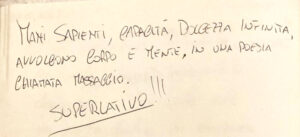 MANI SAPIENTI, CAPACITÀ, DOLCEZZA INFINITA,
AVVOLGONO CORPO E MENTE, IN UNA POESIA
CHIAMATA MASSAGGIO.
SUPERLATIVO!!!